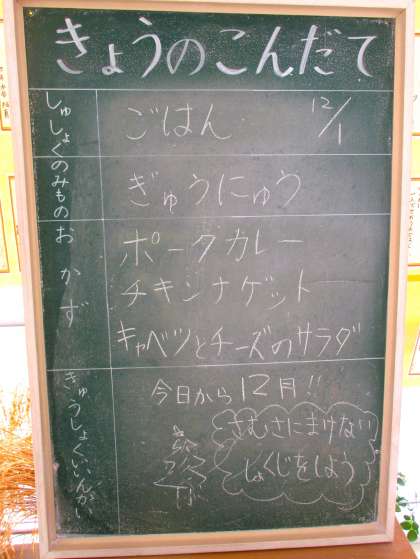 きょうのこんだて
しゅしょく
ごはん
12/1
のみもの
ぎゅうにゅう
おかず
ポークカレー
チキンナゲット
キャベツとチーズのサラダ
きゅうしょくいいんかい
今日から12月!!
さむさにまけない
しょくじをしよう